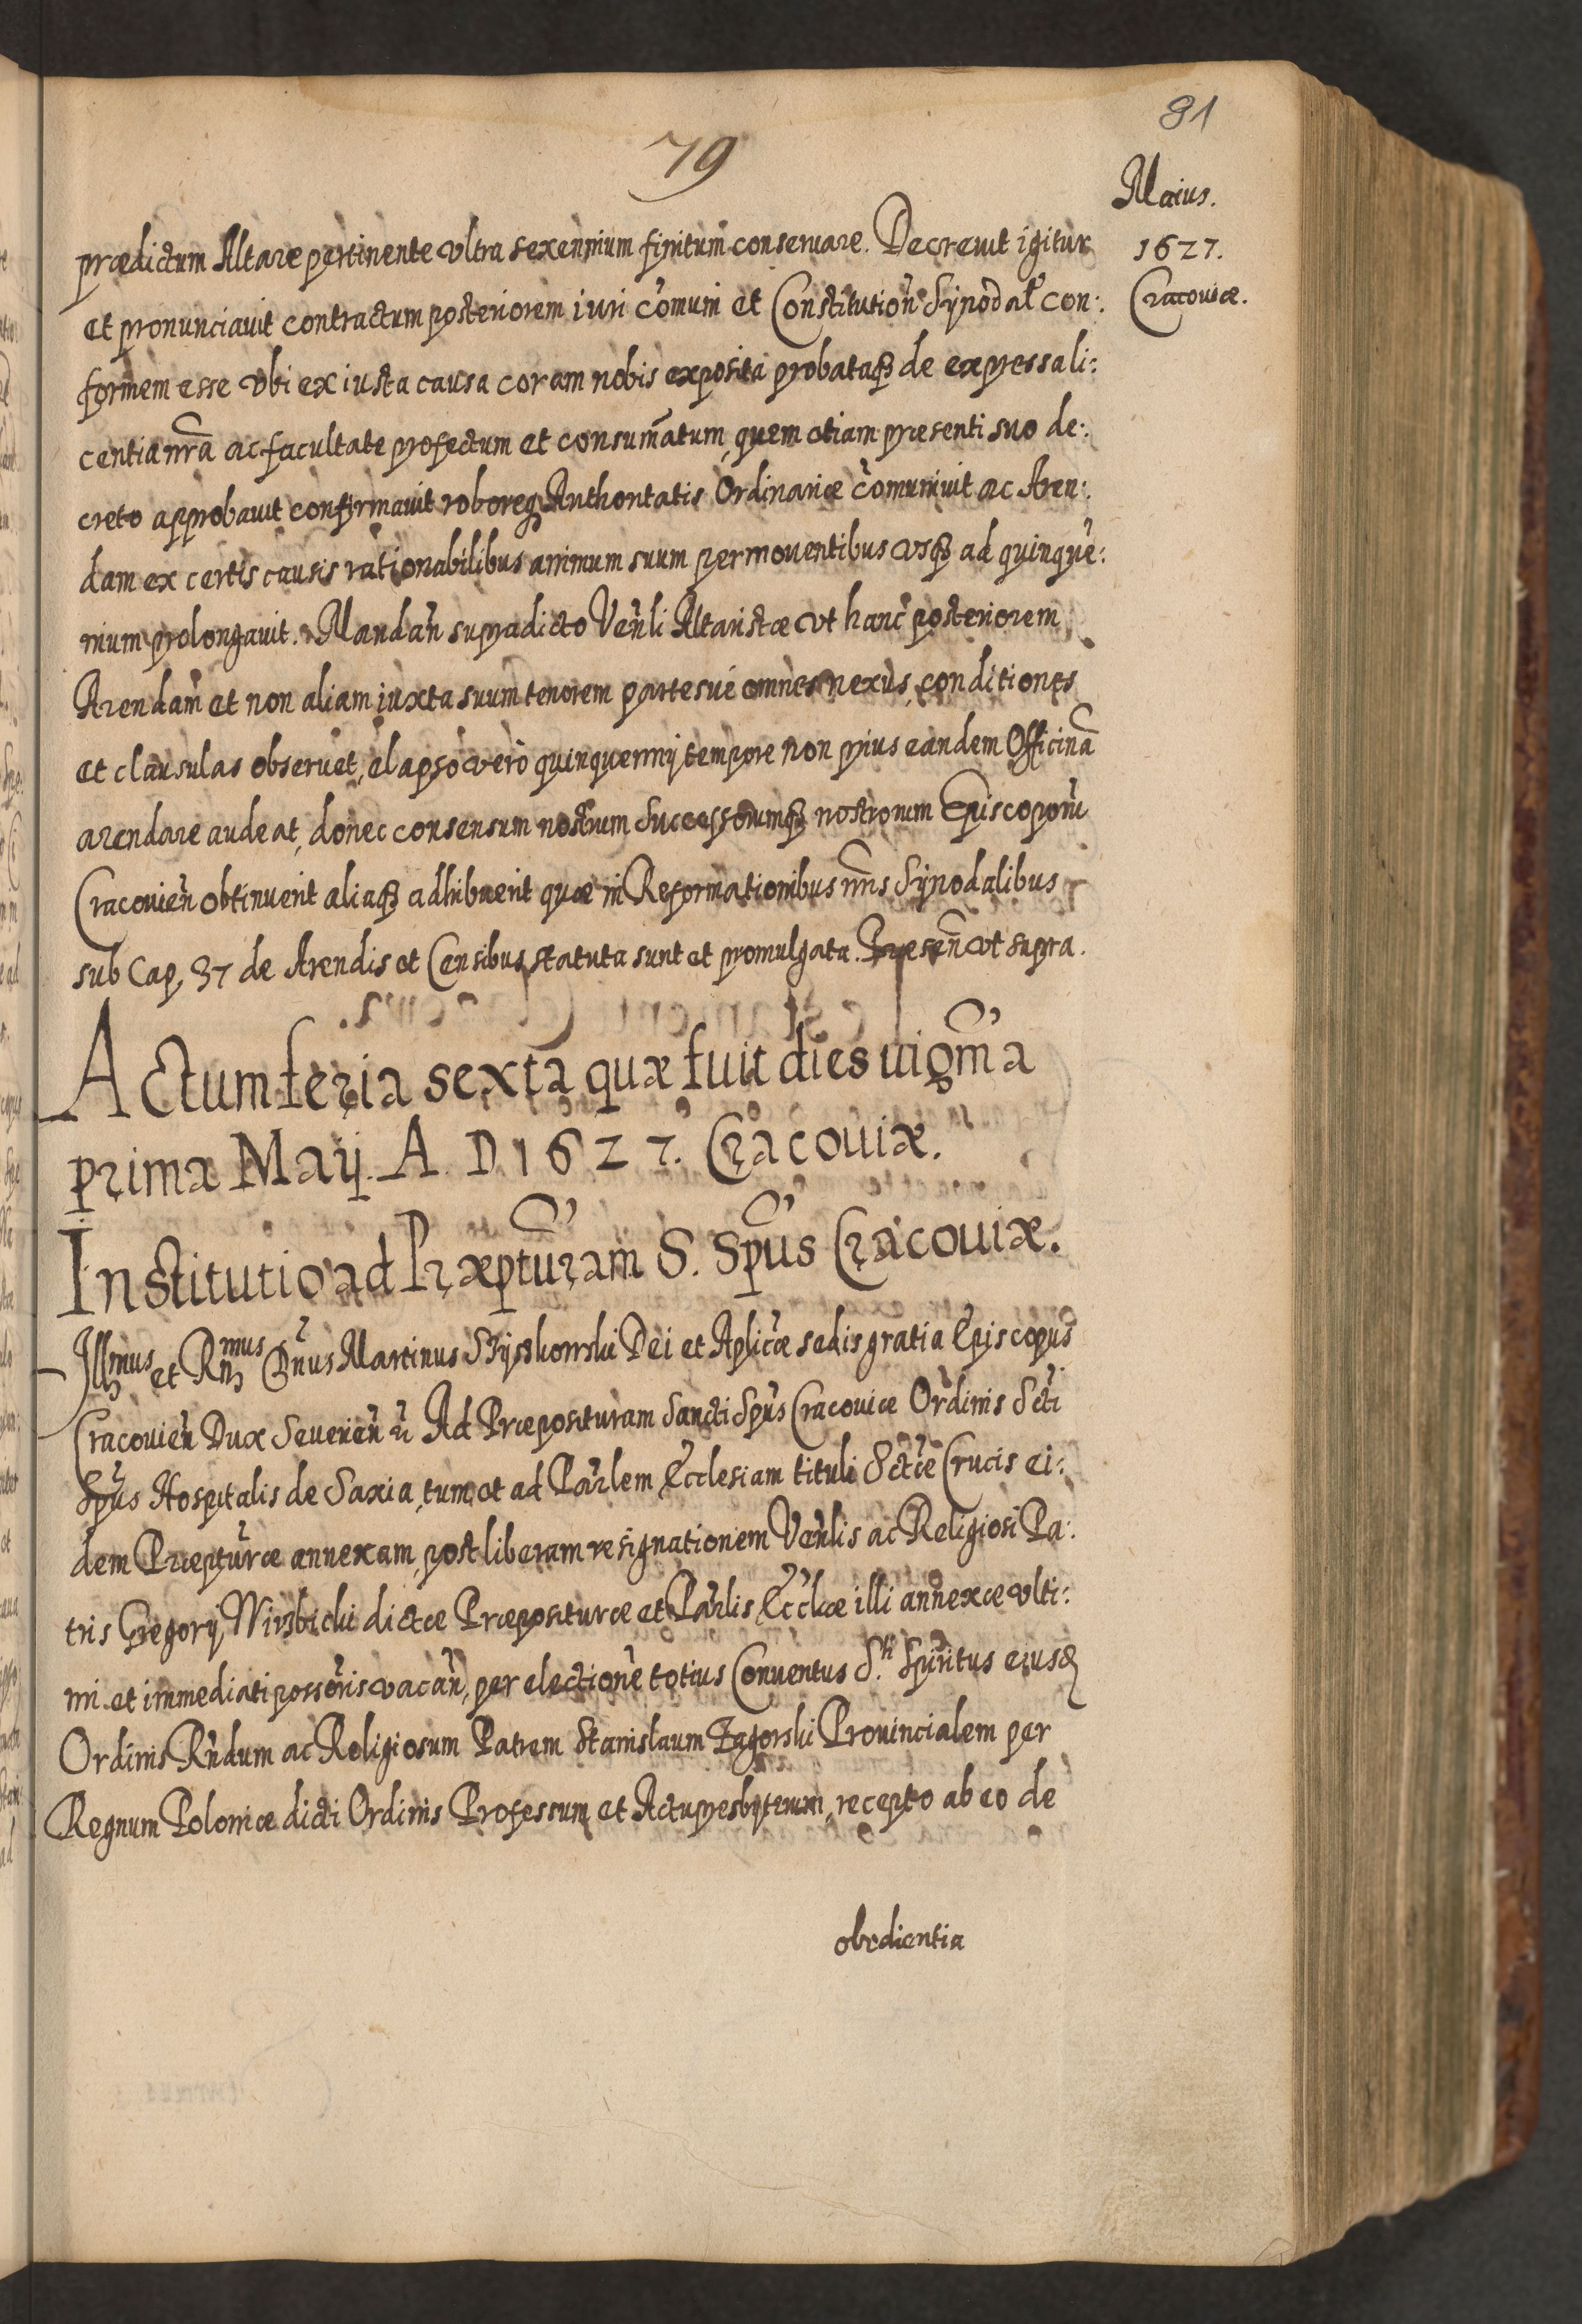 81
79
Maius.
1627.
Cracouiæ.
prædictum Altare pertinente vltra sexennium finitum conseruare. Decreuit igitur
et pronunciauit contractum posteriorem iuri com̃uni et Constitutioñ Synodał con:
formem esse vbi ex iusta causa coram nobis exposita probataq₃ de expressa li:
centia nr̃a ac facultate profectum et consum̃atum, quem etiam presenti suo de:
creto approbauit confirmauit roboreq₃ Authoritatis Ordinariæ com̃uniuit ac Aren:
dam ex certis causis rationabilibus animum suum permouentibus vsq₃ ad quinquẽ:
nium prolongauit. Mandañ supradicto Veñli Altaristæ vt hanc posteriorem
Arendam et non aliam iuxta suum tenorem partesué omnes nexus, conditiones
et clausulas obseruet, elapso verò quinquennij tempore non prius eandem Officinã
arendare audeat, donec consensum nostrum Successorumq₃ nostrorum Episcoporũ
Cracouieñ obtinuerit aliaq₃ adhibuerit quæ in Reformationibus nr̃is Synodalibus
sub Cap. 37 de Arendis et Censibus statuta sunt et promulgata. Præseñ vt supra.
Actum feria sexta quæ fuit dies uigm̃a
prima Maij. A. D 1627. Cracouiæ.
Institutio ad Præptũram S. Sp̃us Cracouiæ.
Illmus et Rmus Dñus Martinus Szyszkowski Dei et Ap̃licæ sedis gratia Episcopus
Cracouieñ Dux Seuerieñ &c̃ Ad Præposituram Sancti Sp̃us Cracouiæ Ordinis Scti
Sp̃us Hospitalis de Saxia, tum et ad Par̃lem Ecclesiam tituli Sctæ Crucis ei:
dem Præptũræ annexam, post liberam resignationem Veñlis ac Religiosi Pa:
tris Gregorij Wirzbicki dictæ Præposituræ et Par̃lis Eccl̃iæ illi annexæ vlti:
mi et immediati possor̃is vacañ, per electionẽ totius Conuentus S.ti Spiritus eiusd
Ordinis Rñdum ac Religiosum Patrem Stanislaum Zagorski Prouincialem per
Regnum Poloniæ dicti Ordinis Professum et Actupresbyterum, recepto ab eo de
obedientia